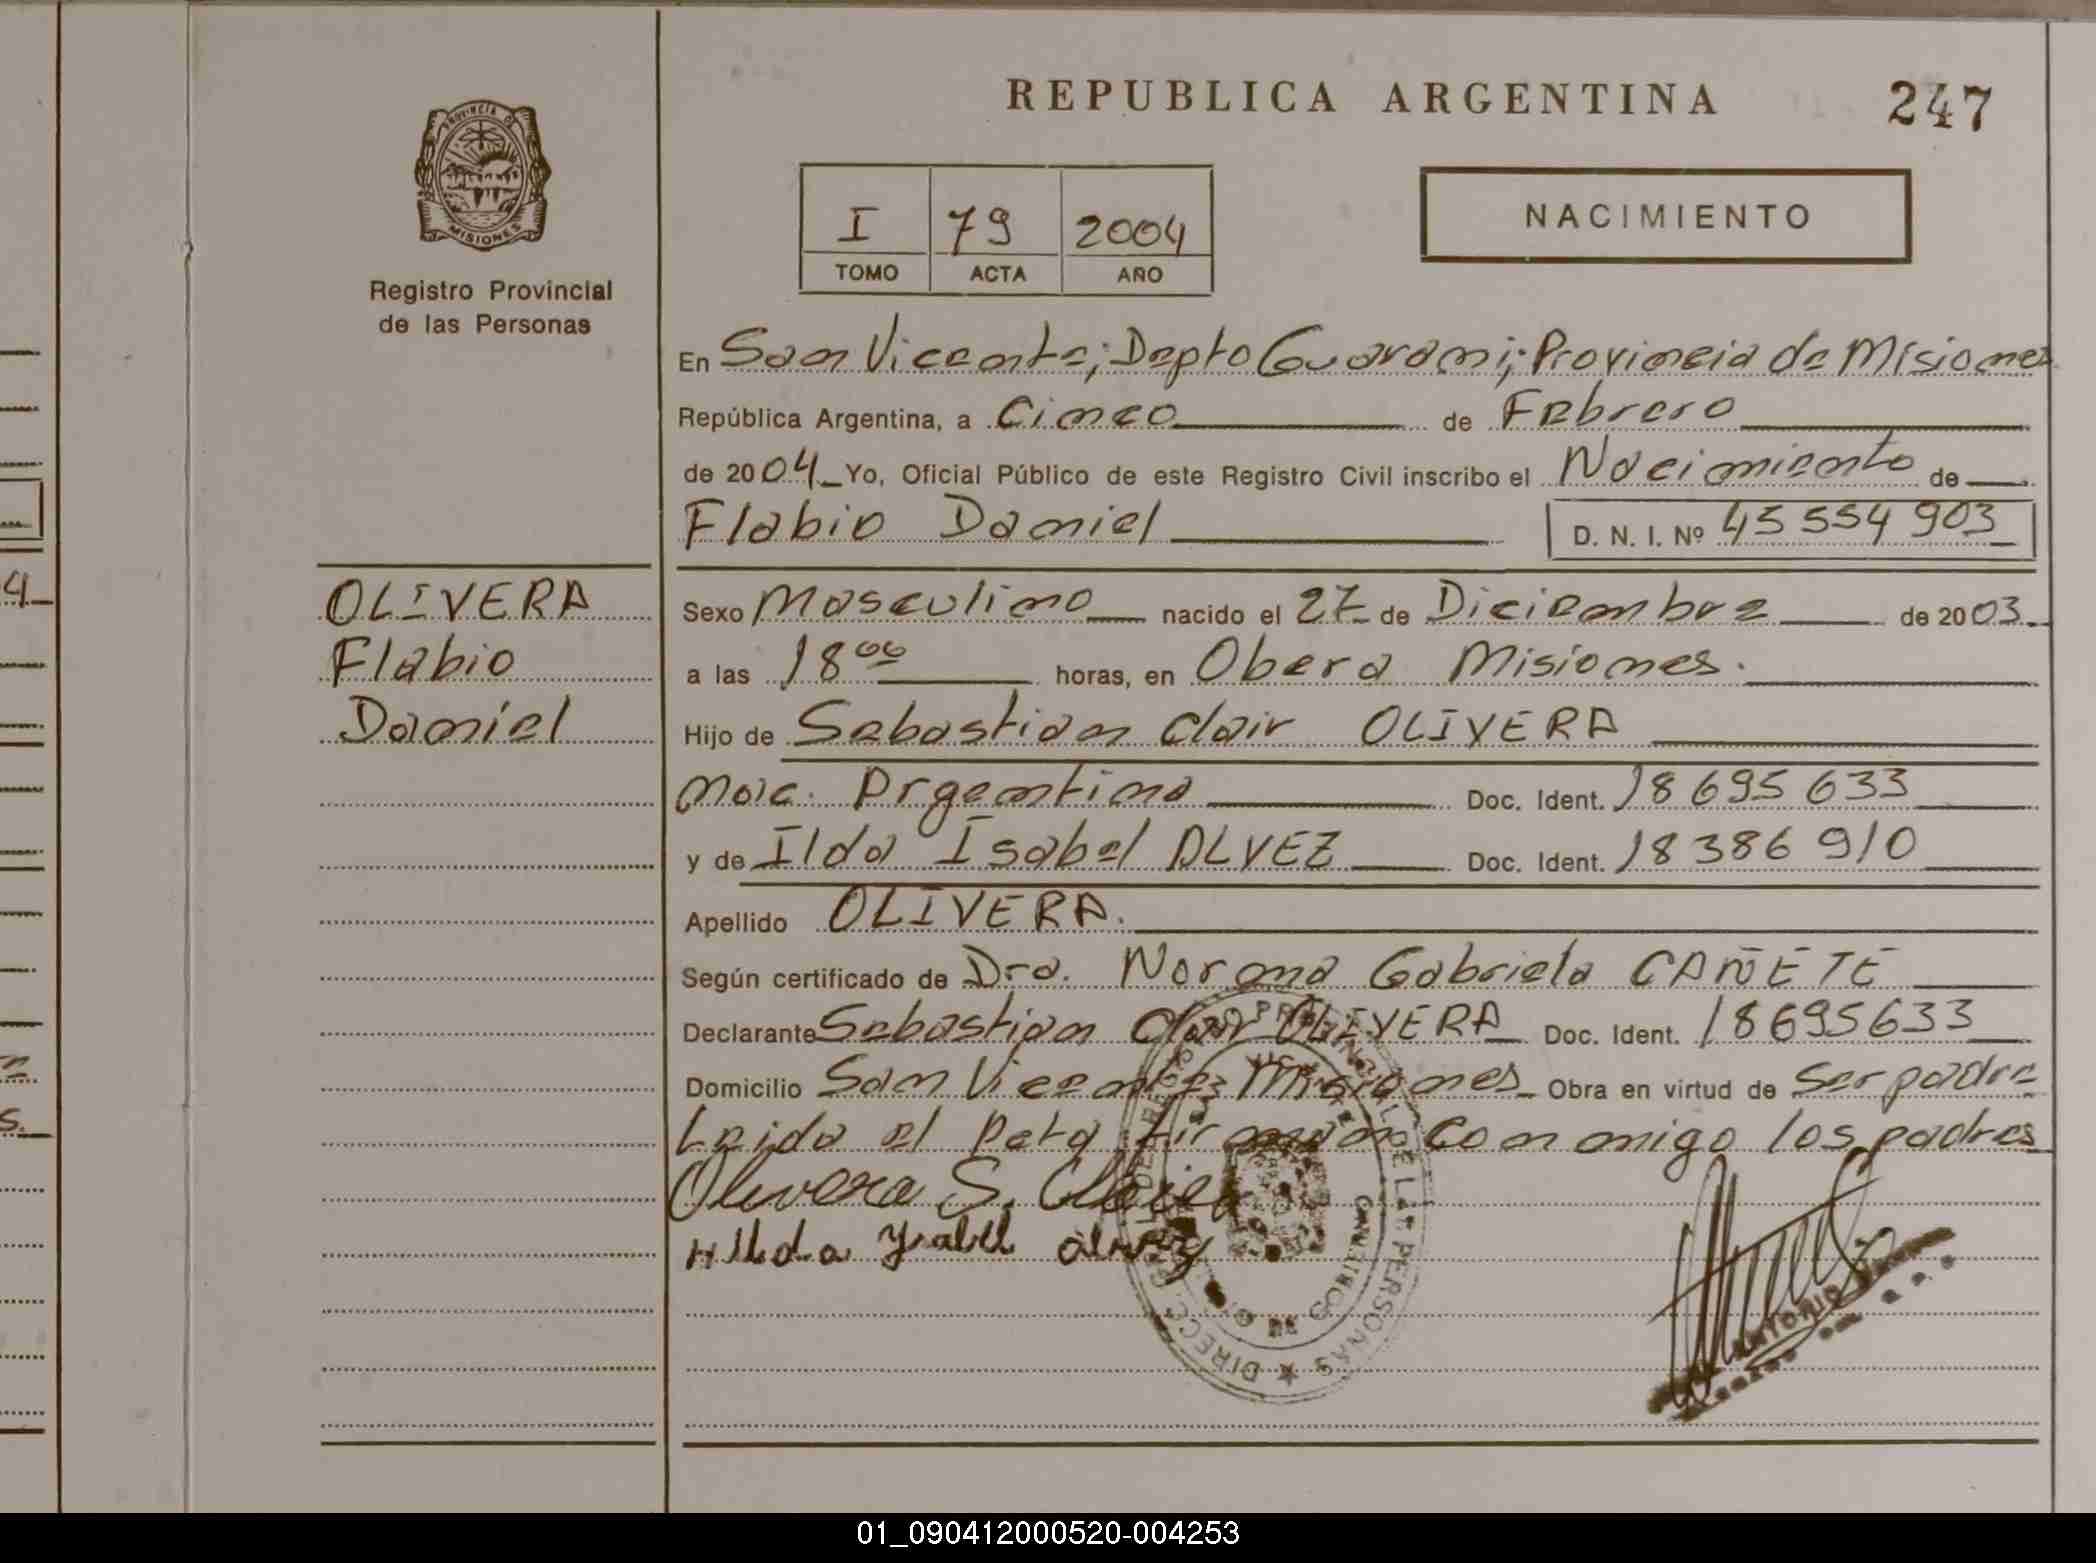 REPUBLICA ARGENTINA
247
PROVINCIA DE
MISIONES
Registro Provincial
de las Personas
I 79 2004
TOMO ACTA AÑO
NACIMIENTO
En San Vicente; Depto Guarani; Provincia de Misiones
República Argentina, a Cinco de Febrero
de 2004 Yo, Oficial Público de este Registro Civil inscribo el Nacimiento de
Flabio Daniel D. N. I. Nº 45 554 903
OLIVERA
Flabio
Daniel
Sexo Masculino nacido el 27 de Diciembre de 2003
a las 18 00 horas, en Obera Misiones.
Hijo de Sebastian Clair OLIVERA
Nac. Argentina Doc. Ident. 18 695 633
y de Ilda Isabel ALVEZ Doc. Ident. 18 386 910
Apellido OLIVERA.
Según certificado de Dra. Norma Gabriela CAÑETE
Declarante Sebastian Clair OLIVERA Doc. Ident. 18695633
Domicilio San Vicente Misiones Obra en virtud de Ser padre
Leida el Acta firman conmigo los padres
Olivera S. Clair
Ilda Ysabel alvez
PERSONAS
ANTONIO
4
s.
01_090412000520-004253